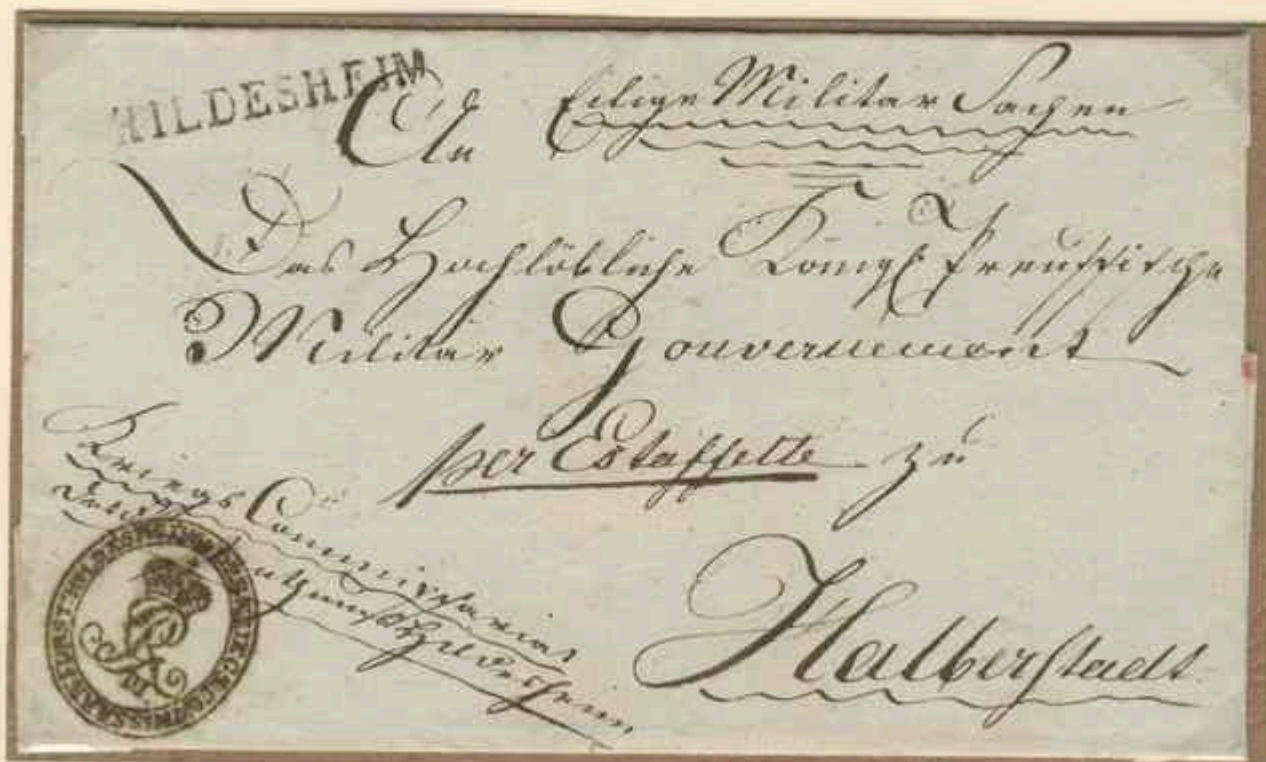 HILDESHEIM
Eilige Militär Sachen
An
Das Hochlöbliche Königl Preußische
Militär Gouvernement
per Estaffette zu
Halberstadt
Kriegs Commissariat